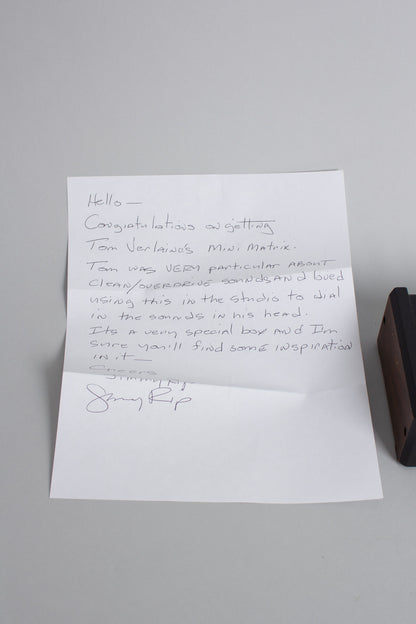 Hello —
Congratulations on getting
Tom Verlaine's Mini Matrix.
Tom was very particular about
clean/overdrive sounds and loved
using this in the studio to dial
in the sounds in his head.
Its a very special box and I'm
sure you'll find some inspiration
in it —
Cheers
Jimmy Rip
Jimmy Rip